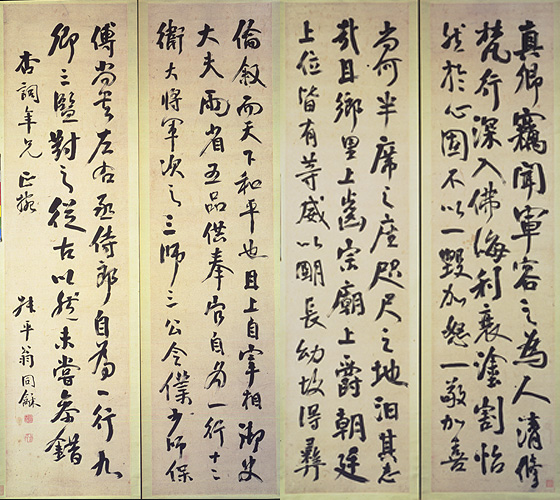 真卿竊聞軍容之為人清修
梵行深入佛海利衰塗割怡
然於心固不以一毀加怒一敬加喜
尚何半席之座咫尺之地汨其志
哉且鄉里上齒宗廟上爵朝廷
上位皆有等威以明長幼故得彝
倫敘而天下和平也且上自宰相御史
大夫兩省五品供奉官自為一行十二
衛大將軍次之三師三公令僕少師保
傅尚書左右丞侍郎自為一行九
卿三監對之從古以然未嘗參錯
杏詞年兄正
叔平翁同龢